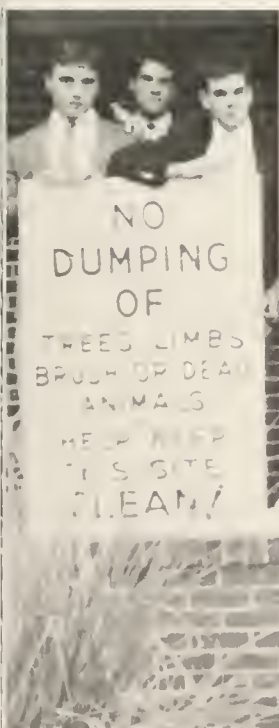 NO
DUMPING
OF
TREES LIMBS
BRUSH OR DEAD
ANIMALS
HELP KEEP
THIS SITE
CLEAN!